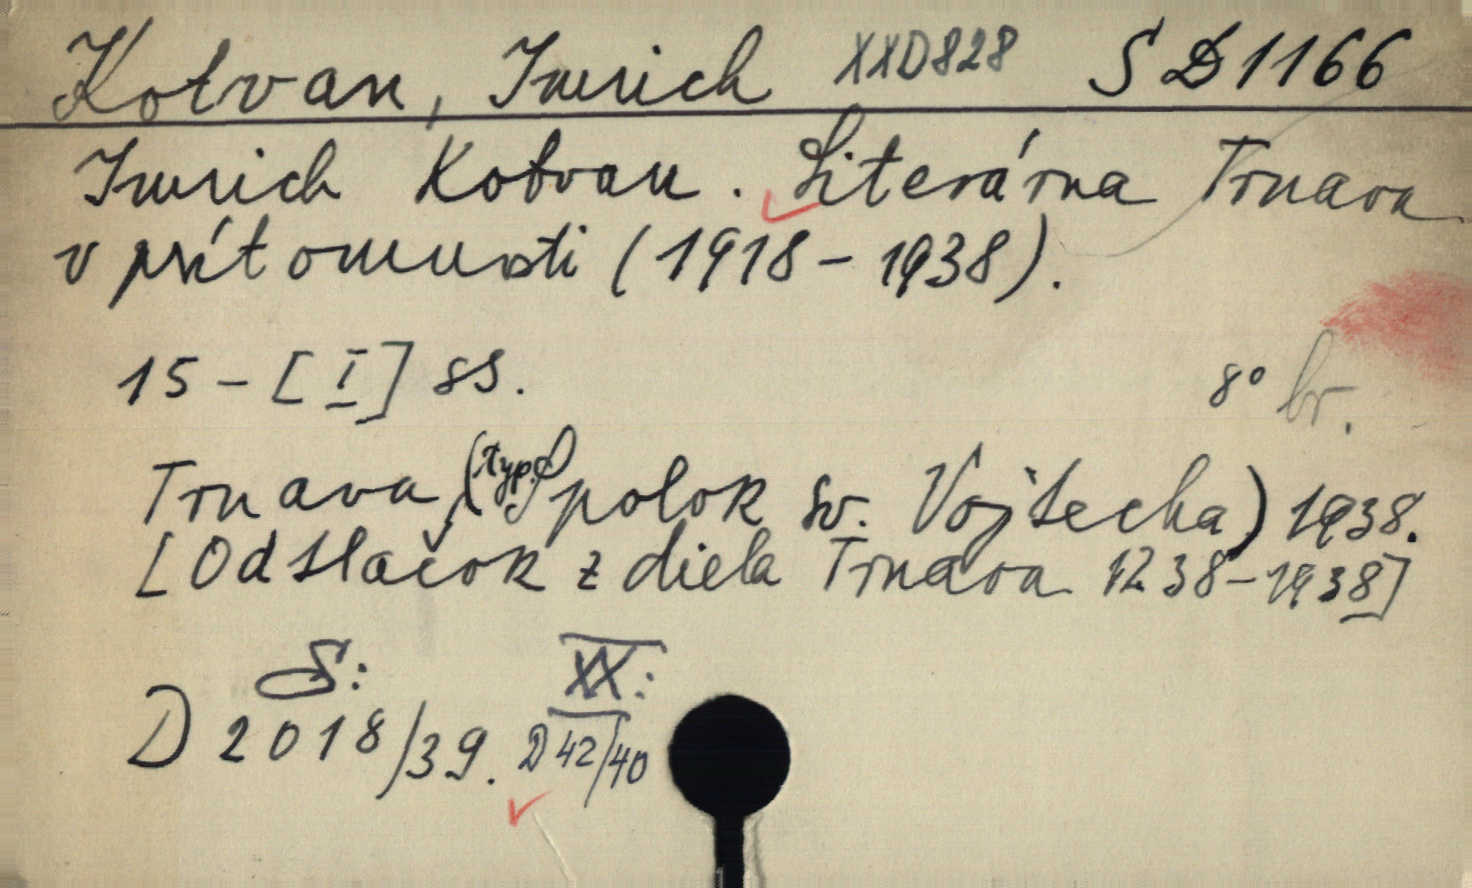 Kotvan, Imrich XXD828 SD1166
Imrich Kotvan. Literárna Trnava
v prítomnosti (1918-1938).
15-[I] ss. 8° br.
Trnava, (typ. Spolok sv. Vojtecha) 1938.
[Odtlačok z diela Trnava 1238-1938]
S: XX:
D 2018/39. D 42/40